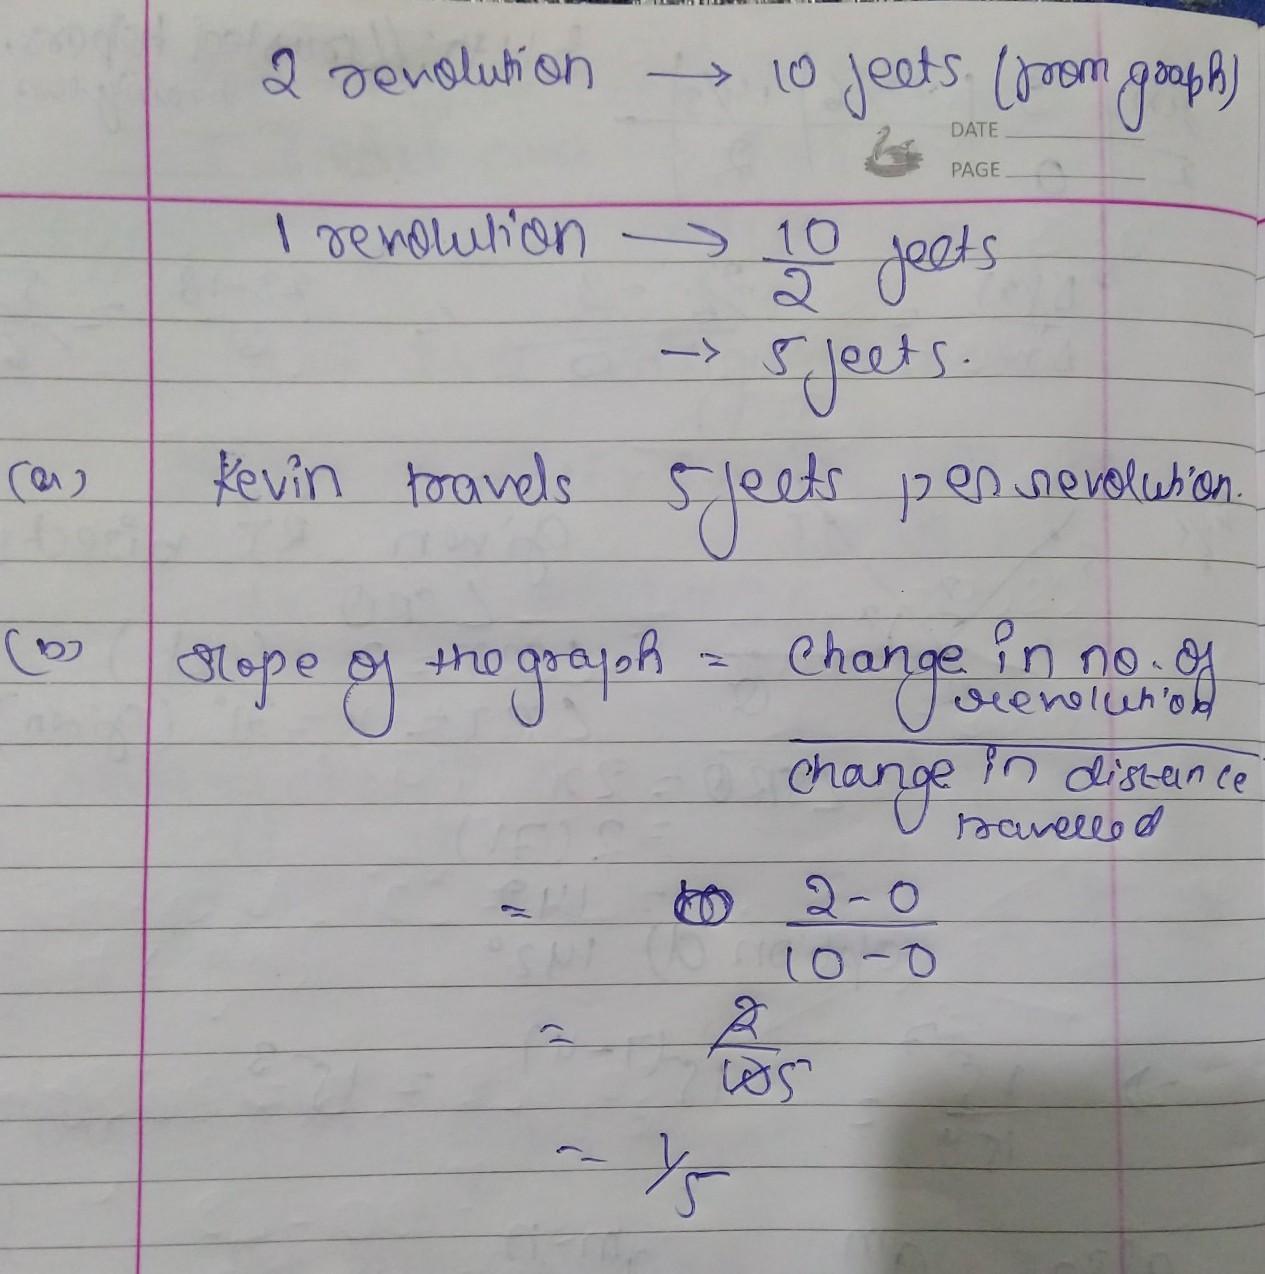 2 revolution → 10 feets (from graph)
DATE
PAGE
1 revolution → 10/2 feets
→ 5 feets.
(a) Kevin travels 5 feets per revolution.
(b) slope of the graph = change in no. of
revolution
change in distance
travelled
= 2-0
10-0
= 2
10 5
= 1/5